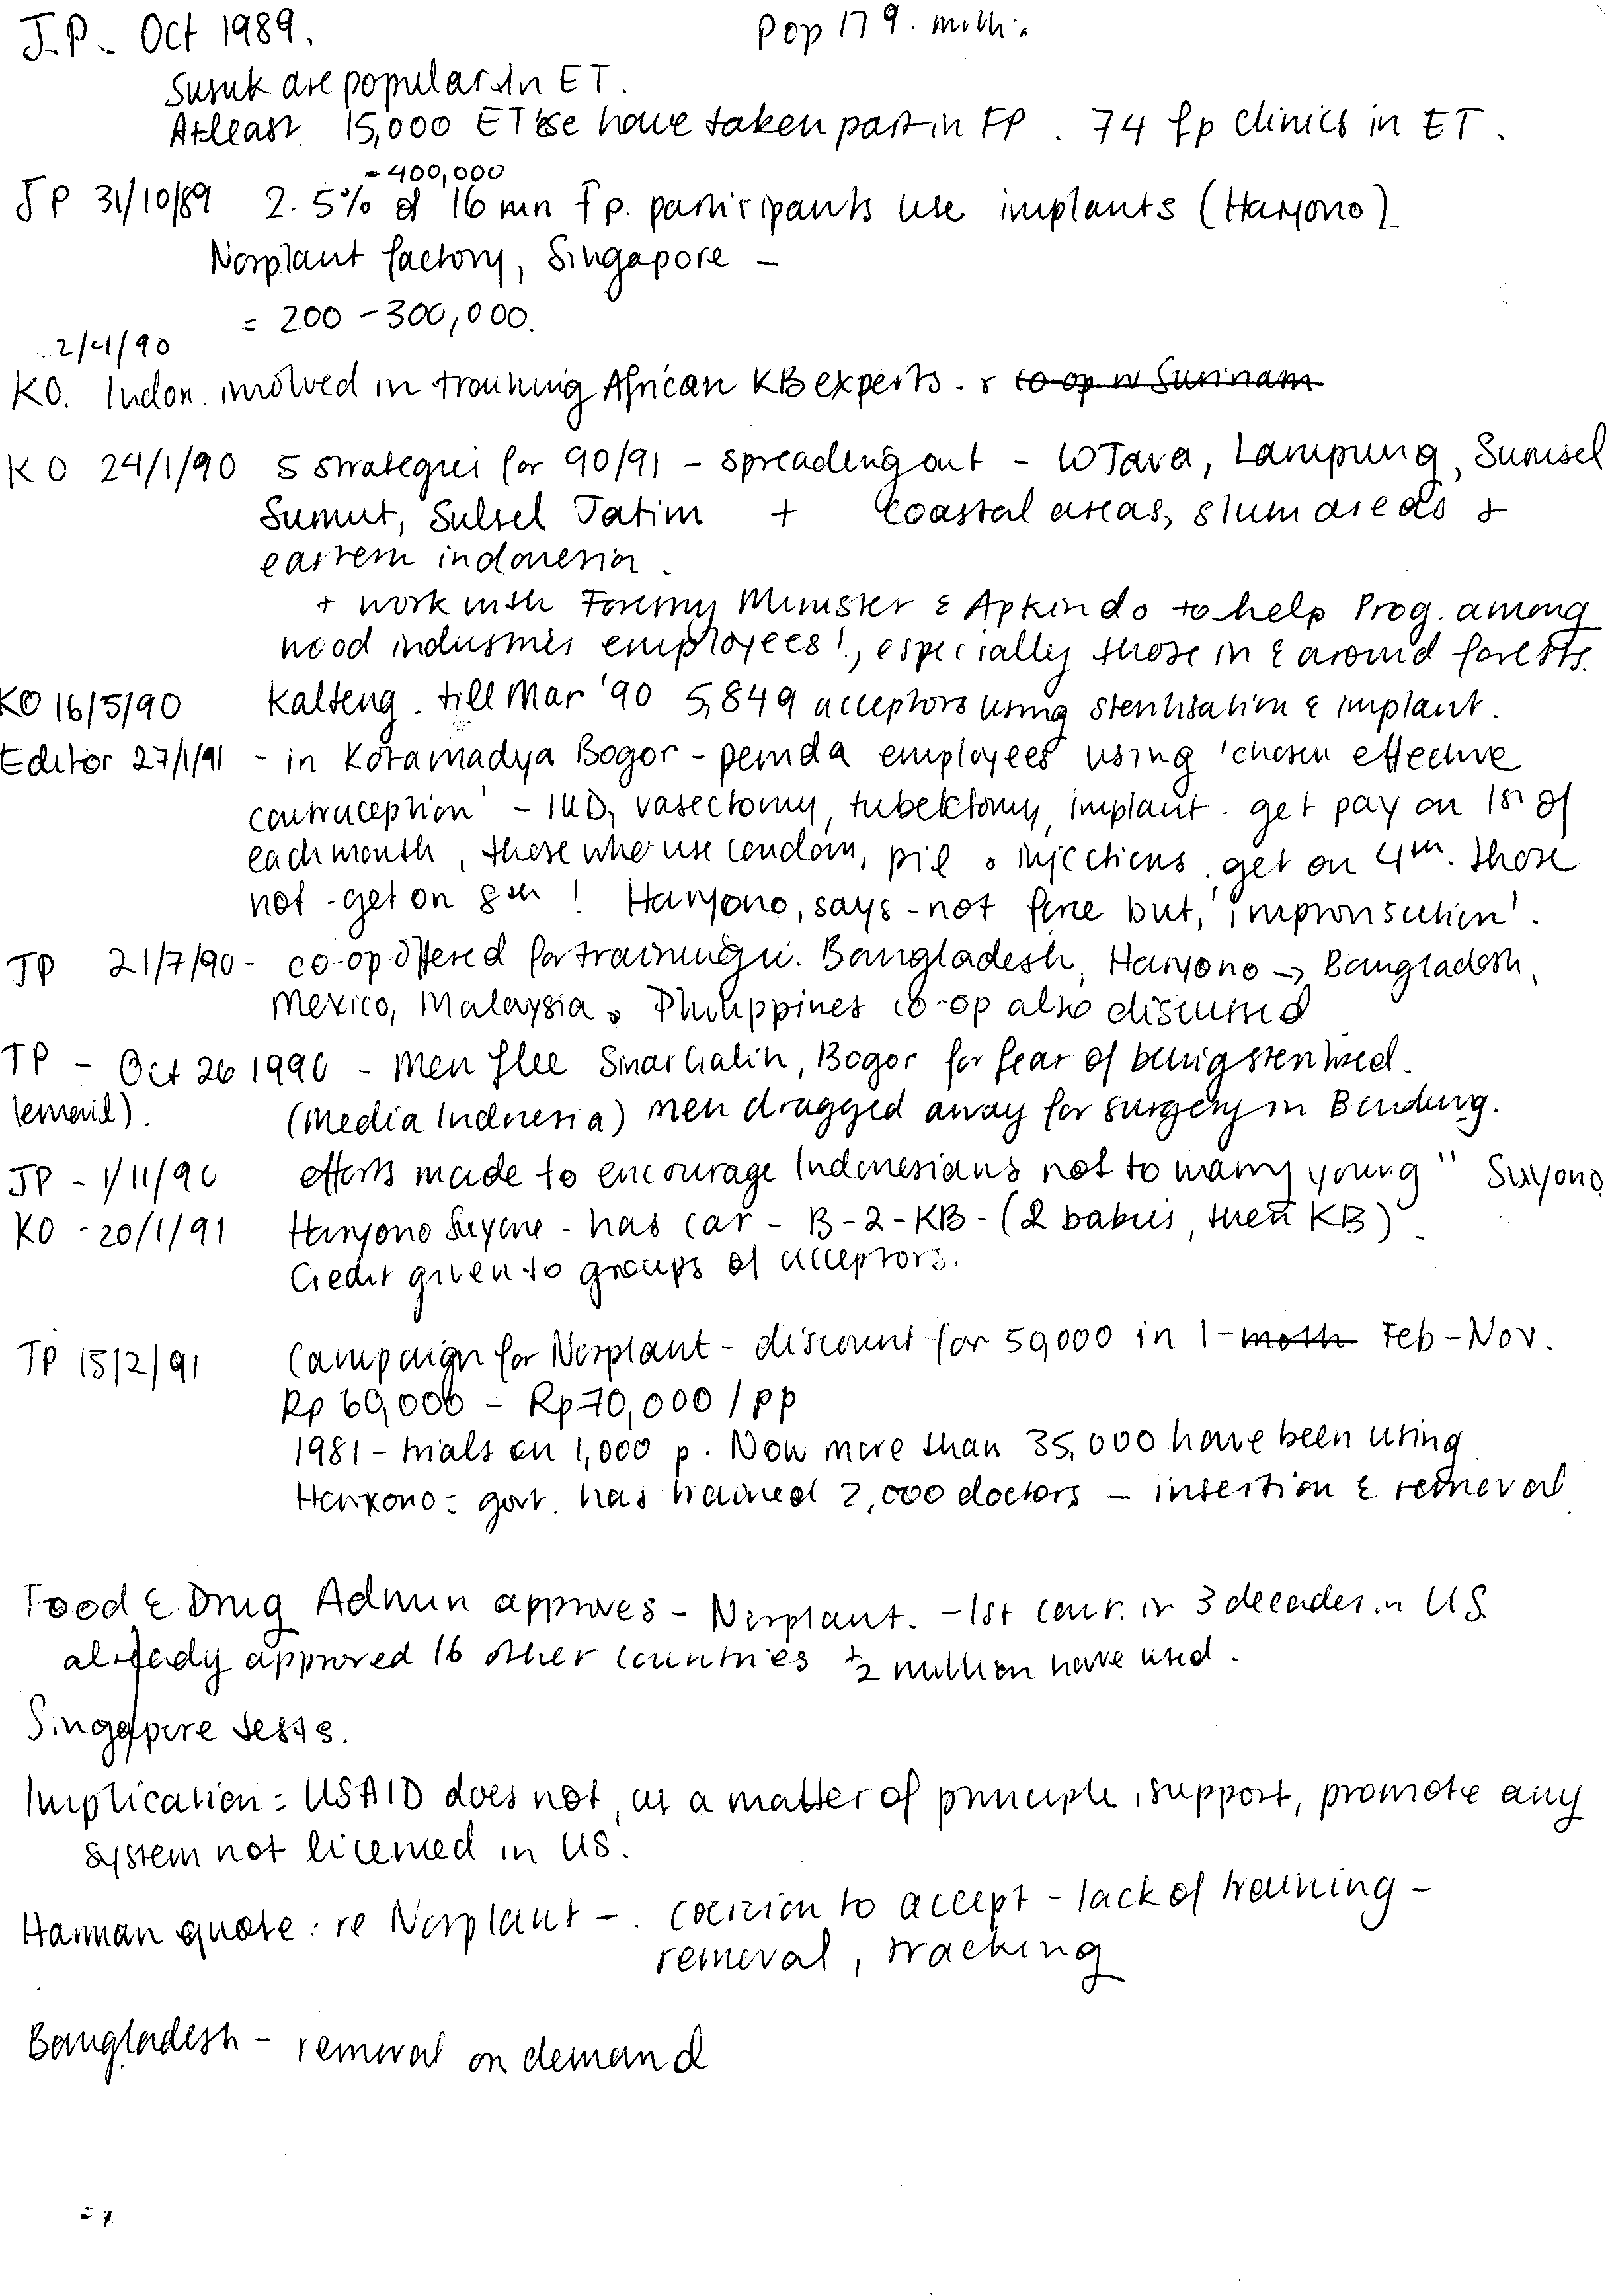 J.P - Oct 1989. Pop 179. milli.
Susuk are popular in ET.
At least 15,000 ETese have taken part in FP. 74 fp clinics in ET.
= 400,000
JP 31/10/89 2.5% of 16 mn fp. participants use implants (Haryono)
Norplant factory, Singapore -
= 200 - 300,000.
2/4/90
KO. Indon. involved in training African KB experts. & co-op w Surinam
KO 24/1/90 5 strategies for 90/91 - spreading out - W Java, Lampung, Sumsel
Sumut, Sulsel Jatim + Coastal areas, slum areas &
eastern indonesia.
+ work with Forestry Minister & Apkindo to help Prog. among
wood industries employees!, especially those in & around forests.
KO 16/5/90 Kalteng. till Mar '90 5,849 acceptors using sterilisation & implant.
Editor 27/1/91 - in Kotamadya Bogor - pemda employees using 'chosen effective
contraception' - IUD, vasectomy, tubektomy, implant - get pay on 1st of
each month, those who use condom, pil & injections get on 4th. those
not - get on 8th! Haryono, says - not fine but, 'improvisation'.
JP 21/7/90 - co-op offered for training w. Bangladesh, Haryono → Bangladesh,
Mexico, Malaysia & Philippines co-op also discussed
JP - Oct 26 1990 - Men flee Sinar Galih, Bogor for fear of being sterilised.
(email). (Media Indonesia) men dragged away for surgery in Bandung.
JP - 1/11/90 efforts made to encourage Indonesians not to marry young" Suyono
KO - 20/1/91 Haryono Suyono - has car - B-2-KB - (2 babies, then KB).
Credit given to groups of acceptors.
JP 15/2/91 Campaign for Norplant - discount for 50,000 in 1-moth Feb - Nov.
Rp 60,000 - Rp 70,000 / pp
1981 - trials on 1,000 p. Now more than 35,000 have been using
Haryono = govt. has trained 2,000 doctors - insertion & removal
Food & Drug Admin approves - Norplant. - 1st contr. in 3 decades in US
already approved 16 other countries ½ million have used.
Singapore tests.
Implication = USAID does not, as a matter of principle, support, promote any
system not licensed in US.
Hannan quote: re Norplant - . coercion to accept - lack of training -
removal, tracking
Bangladesh - removal on demand